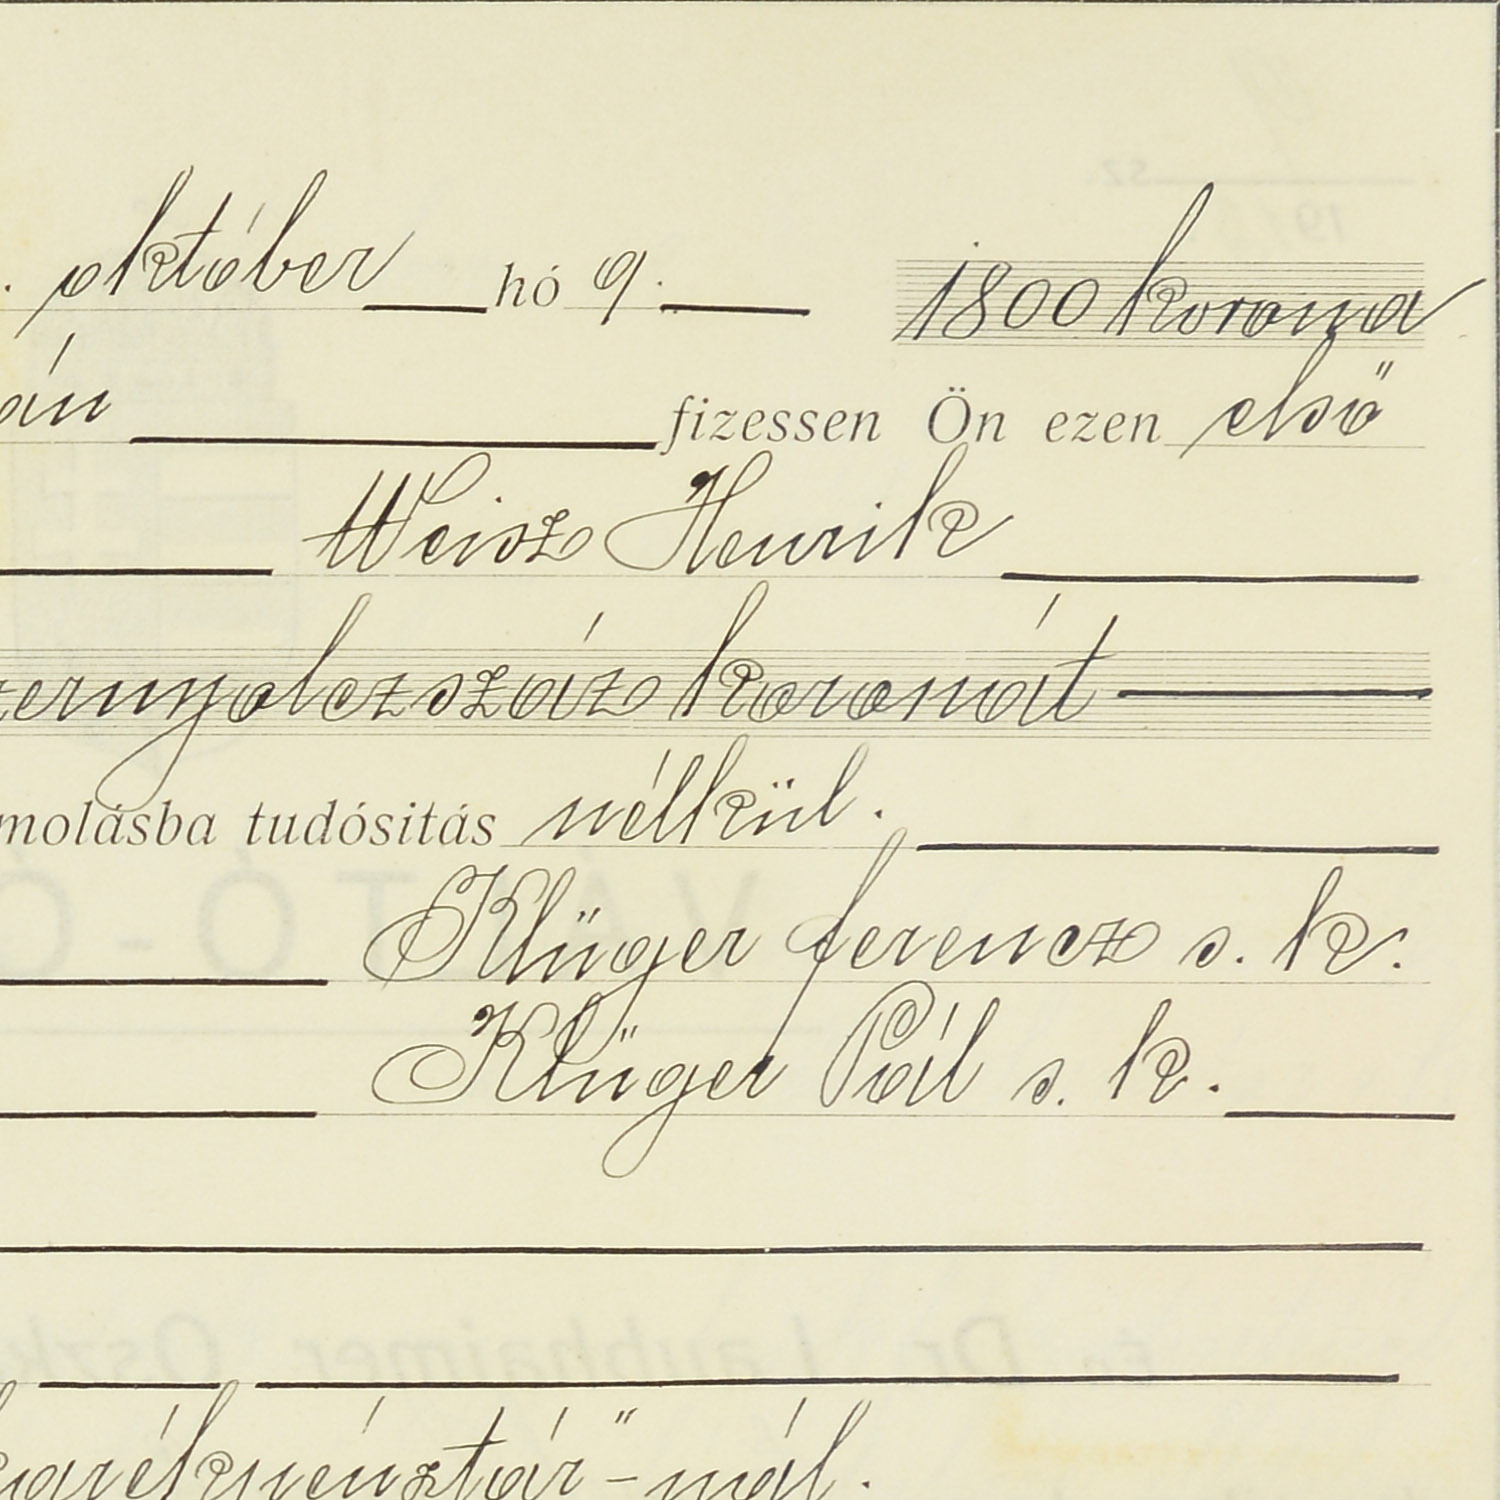 . október hó 9. 1800 korona
án fizessen Ön ezen első
Weisz Henrik
zernyolczszáz koronát
molásba tudósitás nélkül.
Klüger ferencz s. k.
Klüger Pál s. k.
karékpénztár"-nál.